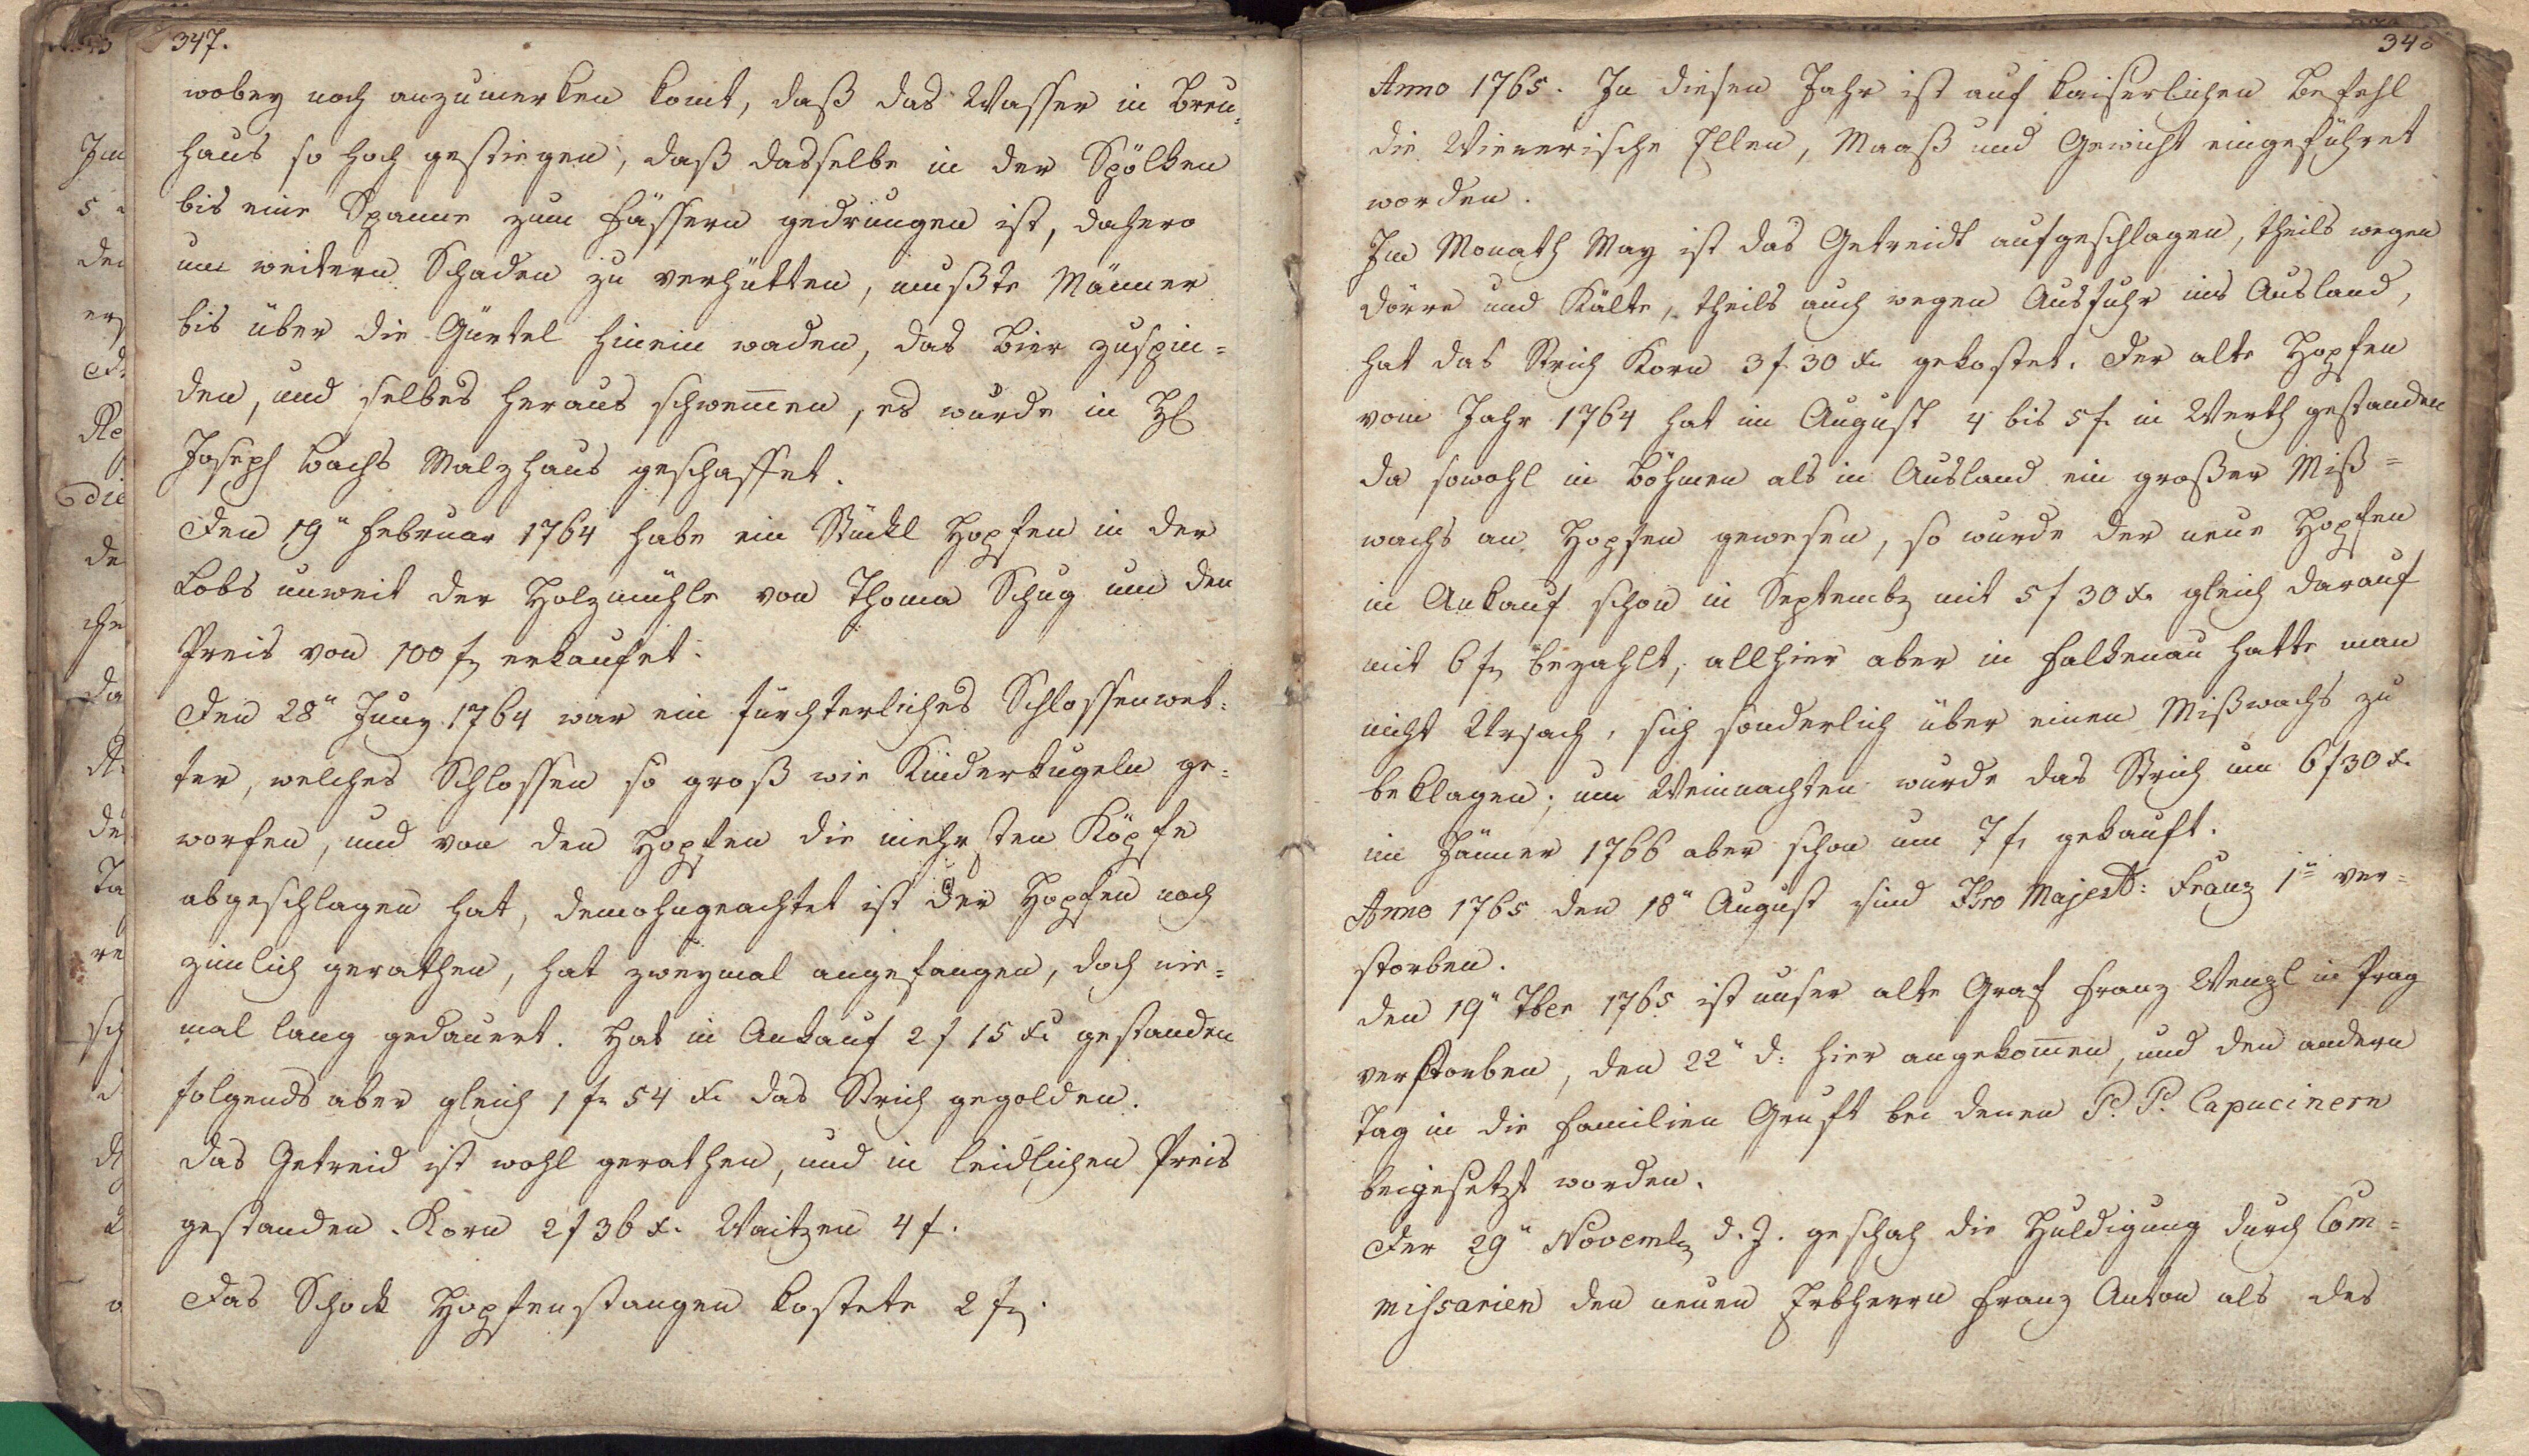 347.
wobey noch anzumerken komt, daß das Wasser in Breu-
haus so hoch gestiegen, daß dasselbe in der Spölken
bis eine Spanne zum Fässern gedrungen ist, dahero
um weitern Schaden zu verhütten, mußte Männer
bis über die Gürtel hinein waden, das Bier zuspin=
den, und selbes heraus schwem̄en, es wurde in H
Joseph Bachs Malzhaus geschaffet.
Den 19" Februar 1764 habe ein Stückl Hopfen in der
Lobs unweit der Holzmühle von Thoma Schug um den
Preis von 100 f erkaufet.
Den 28" Juny 1764 war ein fürchterliches Schlossenwet=
ter, welches Schlossen so groß wie Kinderkugeln ge=
worfen, und von den Hopfen die mehrsten Köpfe
abgeschlagen hat, demohngeachtet ist der Hopfen noch
zimlich gerathen, hat zweymal angefangen, doch nie=
mal lang gedauert. Hat in Ankauf 2 f 15 x gestanden
folgends aber gleich 1 f 54 x das Strich gegolden.
das Getreid ist wohl gerathen, und in leidlichen Preis
gestanden. Korn 2 f 36 x. Waitzen 4 f.
Das Schock Hopfenstangen kostete 2 f.
348
Anno 1765. In diesen Jahr ist auf kaiserlichen Befehl
die Wienerische Ellen, Maaß und Gewicht eingeführet
worden.
Im Monath May ist das Getreidt aufgeschlagen, theils wegen
dörre und Kälte, theils auch wegen Ausfuhr ins Ausland,
hat das Strich Korn 3 f 30 x gekostet. Der alte Hopfen
vom Jahr 1764 hat im August 4 bis 5 f. in Werth gestanden
da sowohl in Böhmen als in Ausland ein großer Miß=
wachs an Hopfen gewesen, so wurde der neue Hopfen
in Ankauf schon in Septemb mit 5 f 30 x gleich darauf
mit 6 f bezahlt, allhier aber in Falkenau hatte man
nicht Ursach, sich sonderlich über einen Mißwachs zu
beklagen; um Weinnachten wurde das Strich um 6 f 30 x.
im Jänner 1766 aber schon um 7 f gekauft.
Anno 1765 den 18" August sind Ihro Majestt: Franz 1" ver=
storben.
den 19" 7ber 1765 ist unser alte Graf Franz Wenzl in Prag
verstorben, den 22" d: hier angekom̄en, und den andern
Tag in die Familien Gruft bei denen P. P. Capucinern
beigesetzt worden.
Der 29" Novemb d. J. geschah die Huldigung durch Com=
missarien den neuen Erbherrn Franz Anton als des